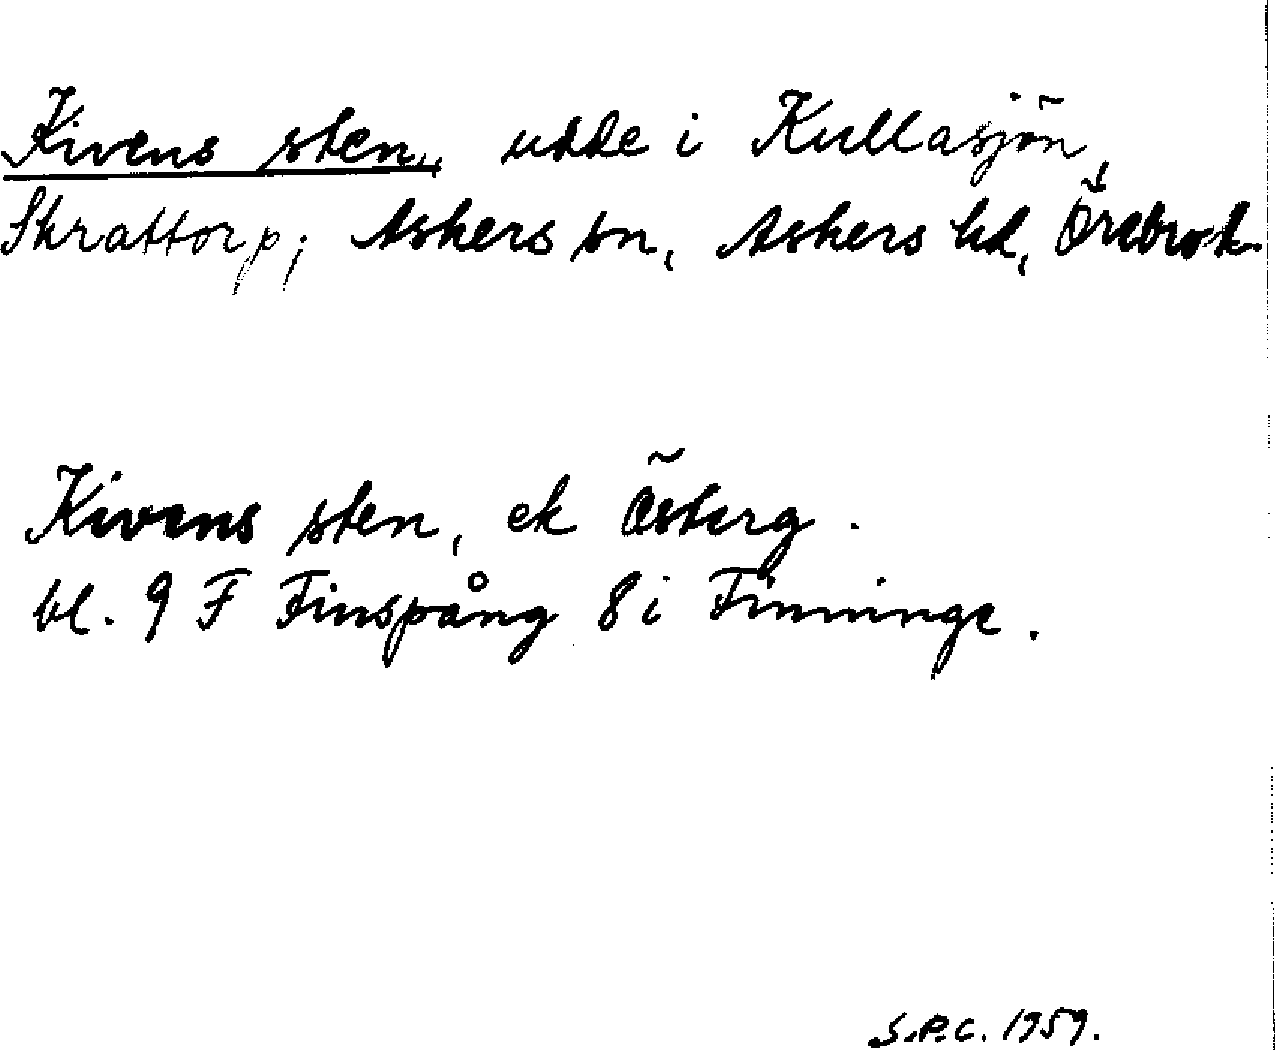 Kivens sten, udde i Kullasjön,
Skrattorp, Askers sn, Askers hd, Örebro l.
Kivens sten, ek Österg.
bl. 9 F Finspång 8 i Finninge.
S.P.C. 1959.